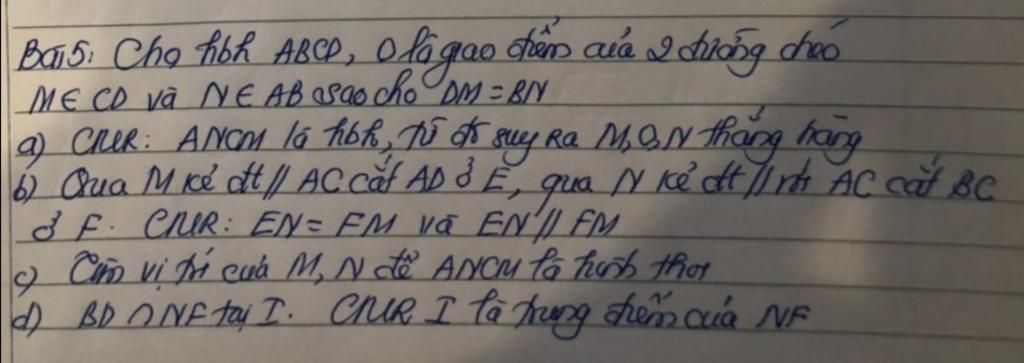 Bài 5: Cho hbh ABCD, O là giao điểm của 2 đường chéo
M∈CD và N∈AB sao cho DM=BN
a) CMR: ANCM là hbh, từ đó suy ra M,O,N thẳng hàng
b) Qua M kẻ đt // AC cắt AD ở E, qua N kẻ đt // với AC cắt BC
ở F. CMR: EN = FM và EN // FM
c) Tìm vị trí của M, N để ANCM là hình thoi
d) BD ∩ NF tại I. CMR I là trung điểm của NF